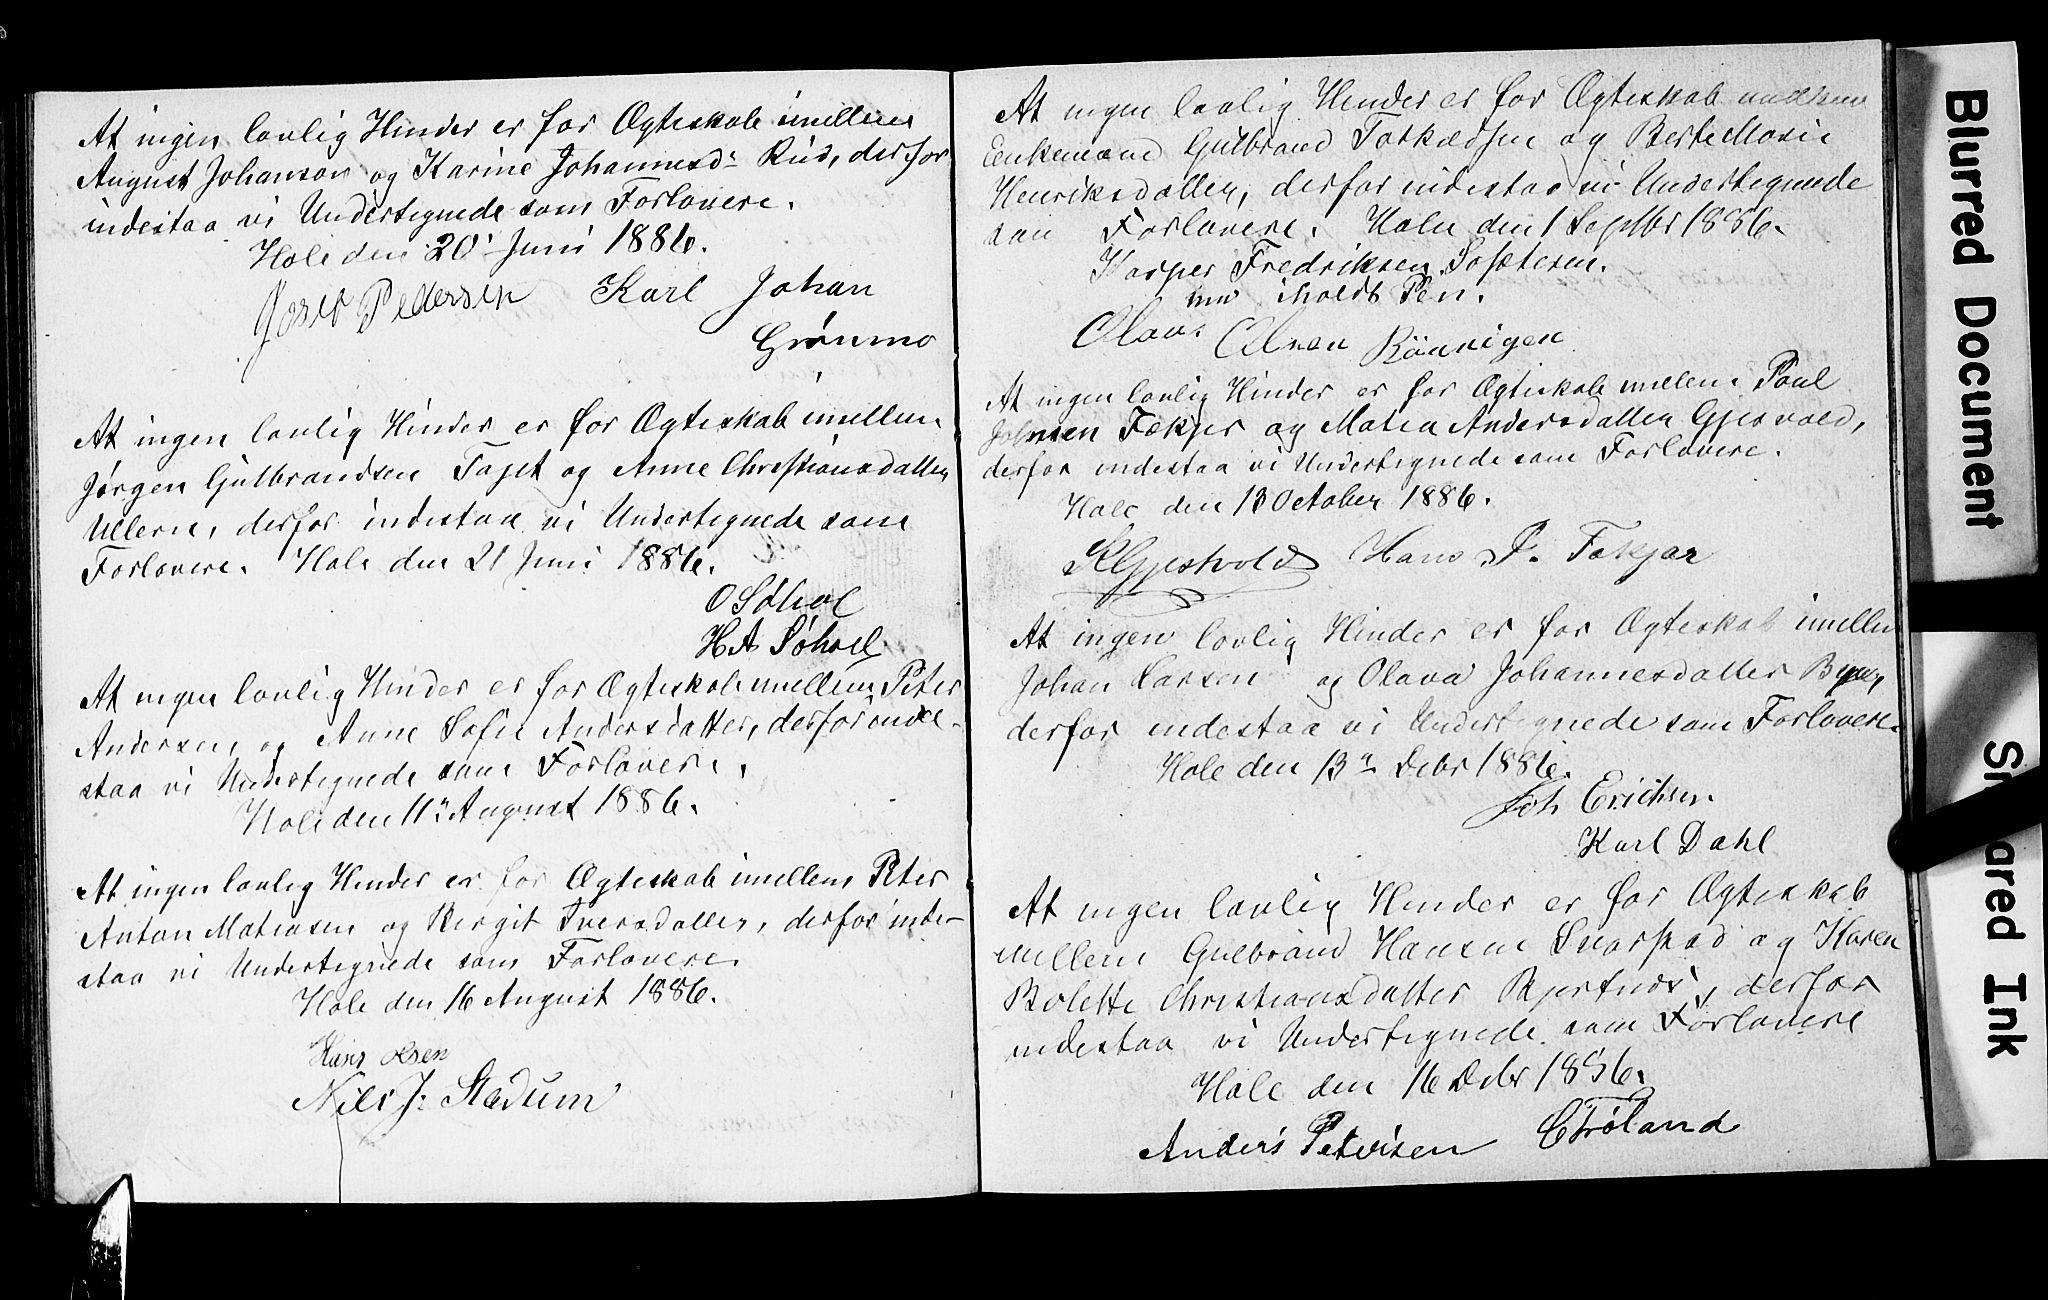 At ingen lovlig Hinder er for Ægteskab imellem
August Johanson og Karine Johannesd: Rud, derfor
indestaa vi Undertegnede som Forlovere.
Hole den 20 Juni 1886.
Josef Pedersen Karl Johan
Grønmo
At ingen lovlig Hinder er for Ægteskab imellem
Jørgen Gulbrandsen Fajet og Anne Christiansdatter
Ullern, derfor indestaa vi Undertegnede som
Forlovere. Hole den 21 Juni 1886.
O Søhol
H A Søhoel
At ingen lovlig Hinder er for Ægteskab imellem Peter
Andersen og Anne Sofie Andersdatter, derfor inde-
staa vi Undertegnede som Forlovere.
Hole den 11te August 1886.
At ingen lovlig Hinder er for Ægteskab imellem Peter
Anton Matiasen og Birgit Iversdatter, derfor inde-
staa vi Undertegnede som Forlovere
Hole den 16 August 1886.
Hans Olsen
Nils J: Stadum
At ingen lovlig Hinder er for Ægteskab mellem
Enkemand Gulbrand og Berte Marie
Henriksdatter, derfor indestaa vi Undertegnede
som Forlovere. Hole den 1 Septbr 1886.
Kasper Fredriksen
m iholdt Pen.
Olaus Olsen Rønnigen
At ingen lovlig Hinder er for Ægteskab imellem Paul
Johnsen Fækjer og Matea Andersdatter Gjesvold,
derfor indestaa vi Undertegnede som Forlovere.
Hole den 13 October 1886.
Gjesvold Hans P. Fekjær
At ingen lovlig Hinder er for Ægteskab imellem
Johan Larsen og Olava Johannesdatter
derfor indestaa vi Undertegnede som Forlovere.
Hole den 13de Debr 1886.
Joh Erichsen
Karl Dahl
At ingen lovlig Hinder er for Ægteskab
imellem Gulbrand Hansen og Karen
Bolette Christiansdatter Bjertnæs, derfor
indestaa vi Undertegnede som Forlovere
Hole den 16 Debr 1886.
Anders Petersen C Frøland
Blurred Document
Smeared Ink